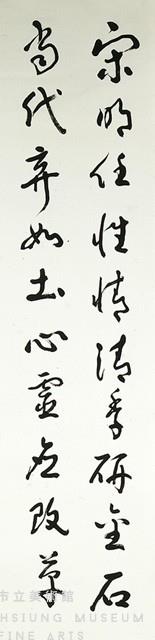 宋明任性情清季研金石
当代弃如土心灵应改革
市立美術館
HSIUNG MUSEUM
FINE ARTS